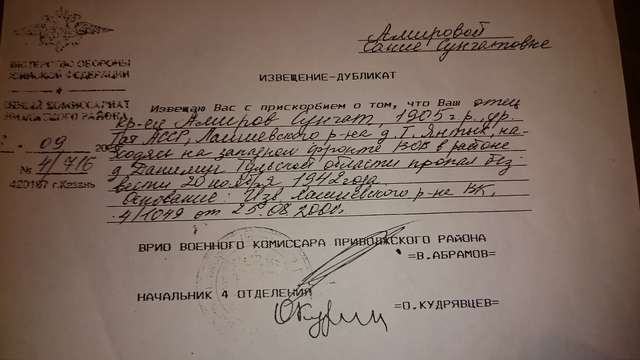 Амировой
Сание Сунгатовне
МИНИСТЕРСТВО ОБОРОНЫ
РОССИЙСКОЙ ФЕДЕРАЦИИ
ИЗВЕЩЕНИЕ-ДУБЛИКАТ
ВОЕННЫЙ КОМИССАРИАТ
РАЙОНА
Извещаю Вас с прискорбием о том, что Ваш отец
кр-ец Амиров Сунгат, 1905 г.р., ур.
Тат АССР, Лаишевского р-на д. Т. Янтык, на-
ходясь на западном фронте ВОВ в районе
д. Данилин Тульской области пропал без
вести, 20 ноября, 1942 года
Основание: Изв. Лаишевского р-на ВК,
4/1049 от 25.08.
09
№ 4/716
420187 г.Казань
ВРИО ВОЕННОГО КОМИССАРА ПРИВОЛЖСКОГО РАЙОНА
=В.АБРАМОВ=
НАЧАЛЬНИК 4 ОТДЕЛЕНИЯ
=О.КУДРЯВЦЕВ=